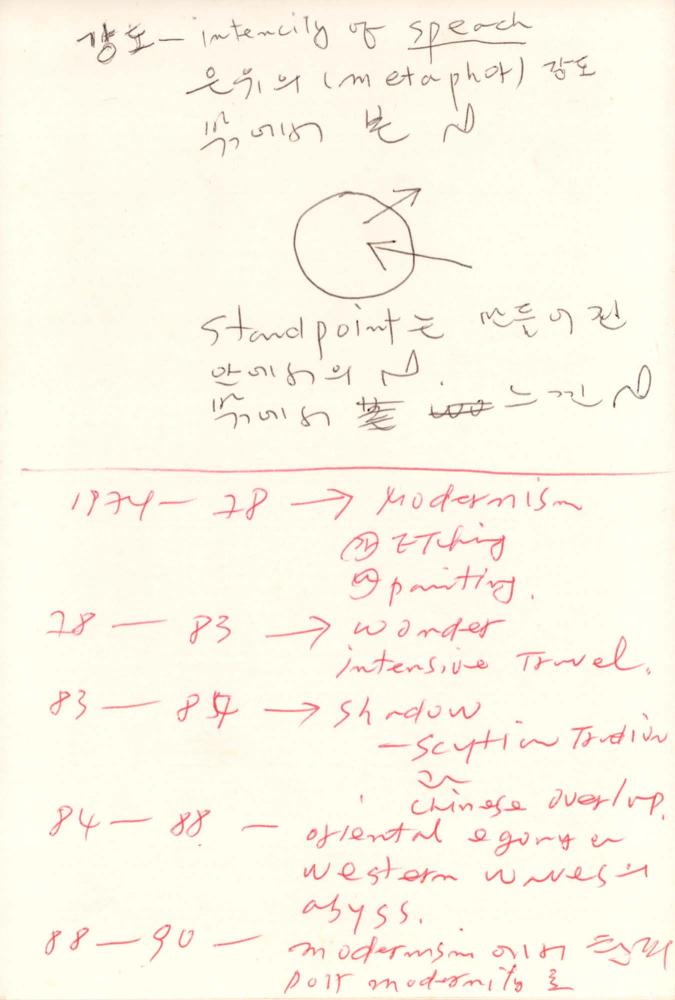 강도 — intencity of speach
은유의 (metaphor) 강도
밖에서 본 시
standpoint는 만들어진
안에서의 시.
밖에서 느낀 시
1974 — 78 → Modernism
㉮ ETching
㉯ painting.
78 — 83 → wonder
intensive Travel.
83 — 84 → shadow
— scythian Tradition
과
chinese overlap.
84 — 88 — oriental
western waves의
abyss.
88 — 90 — modernism에서
post modernity로